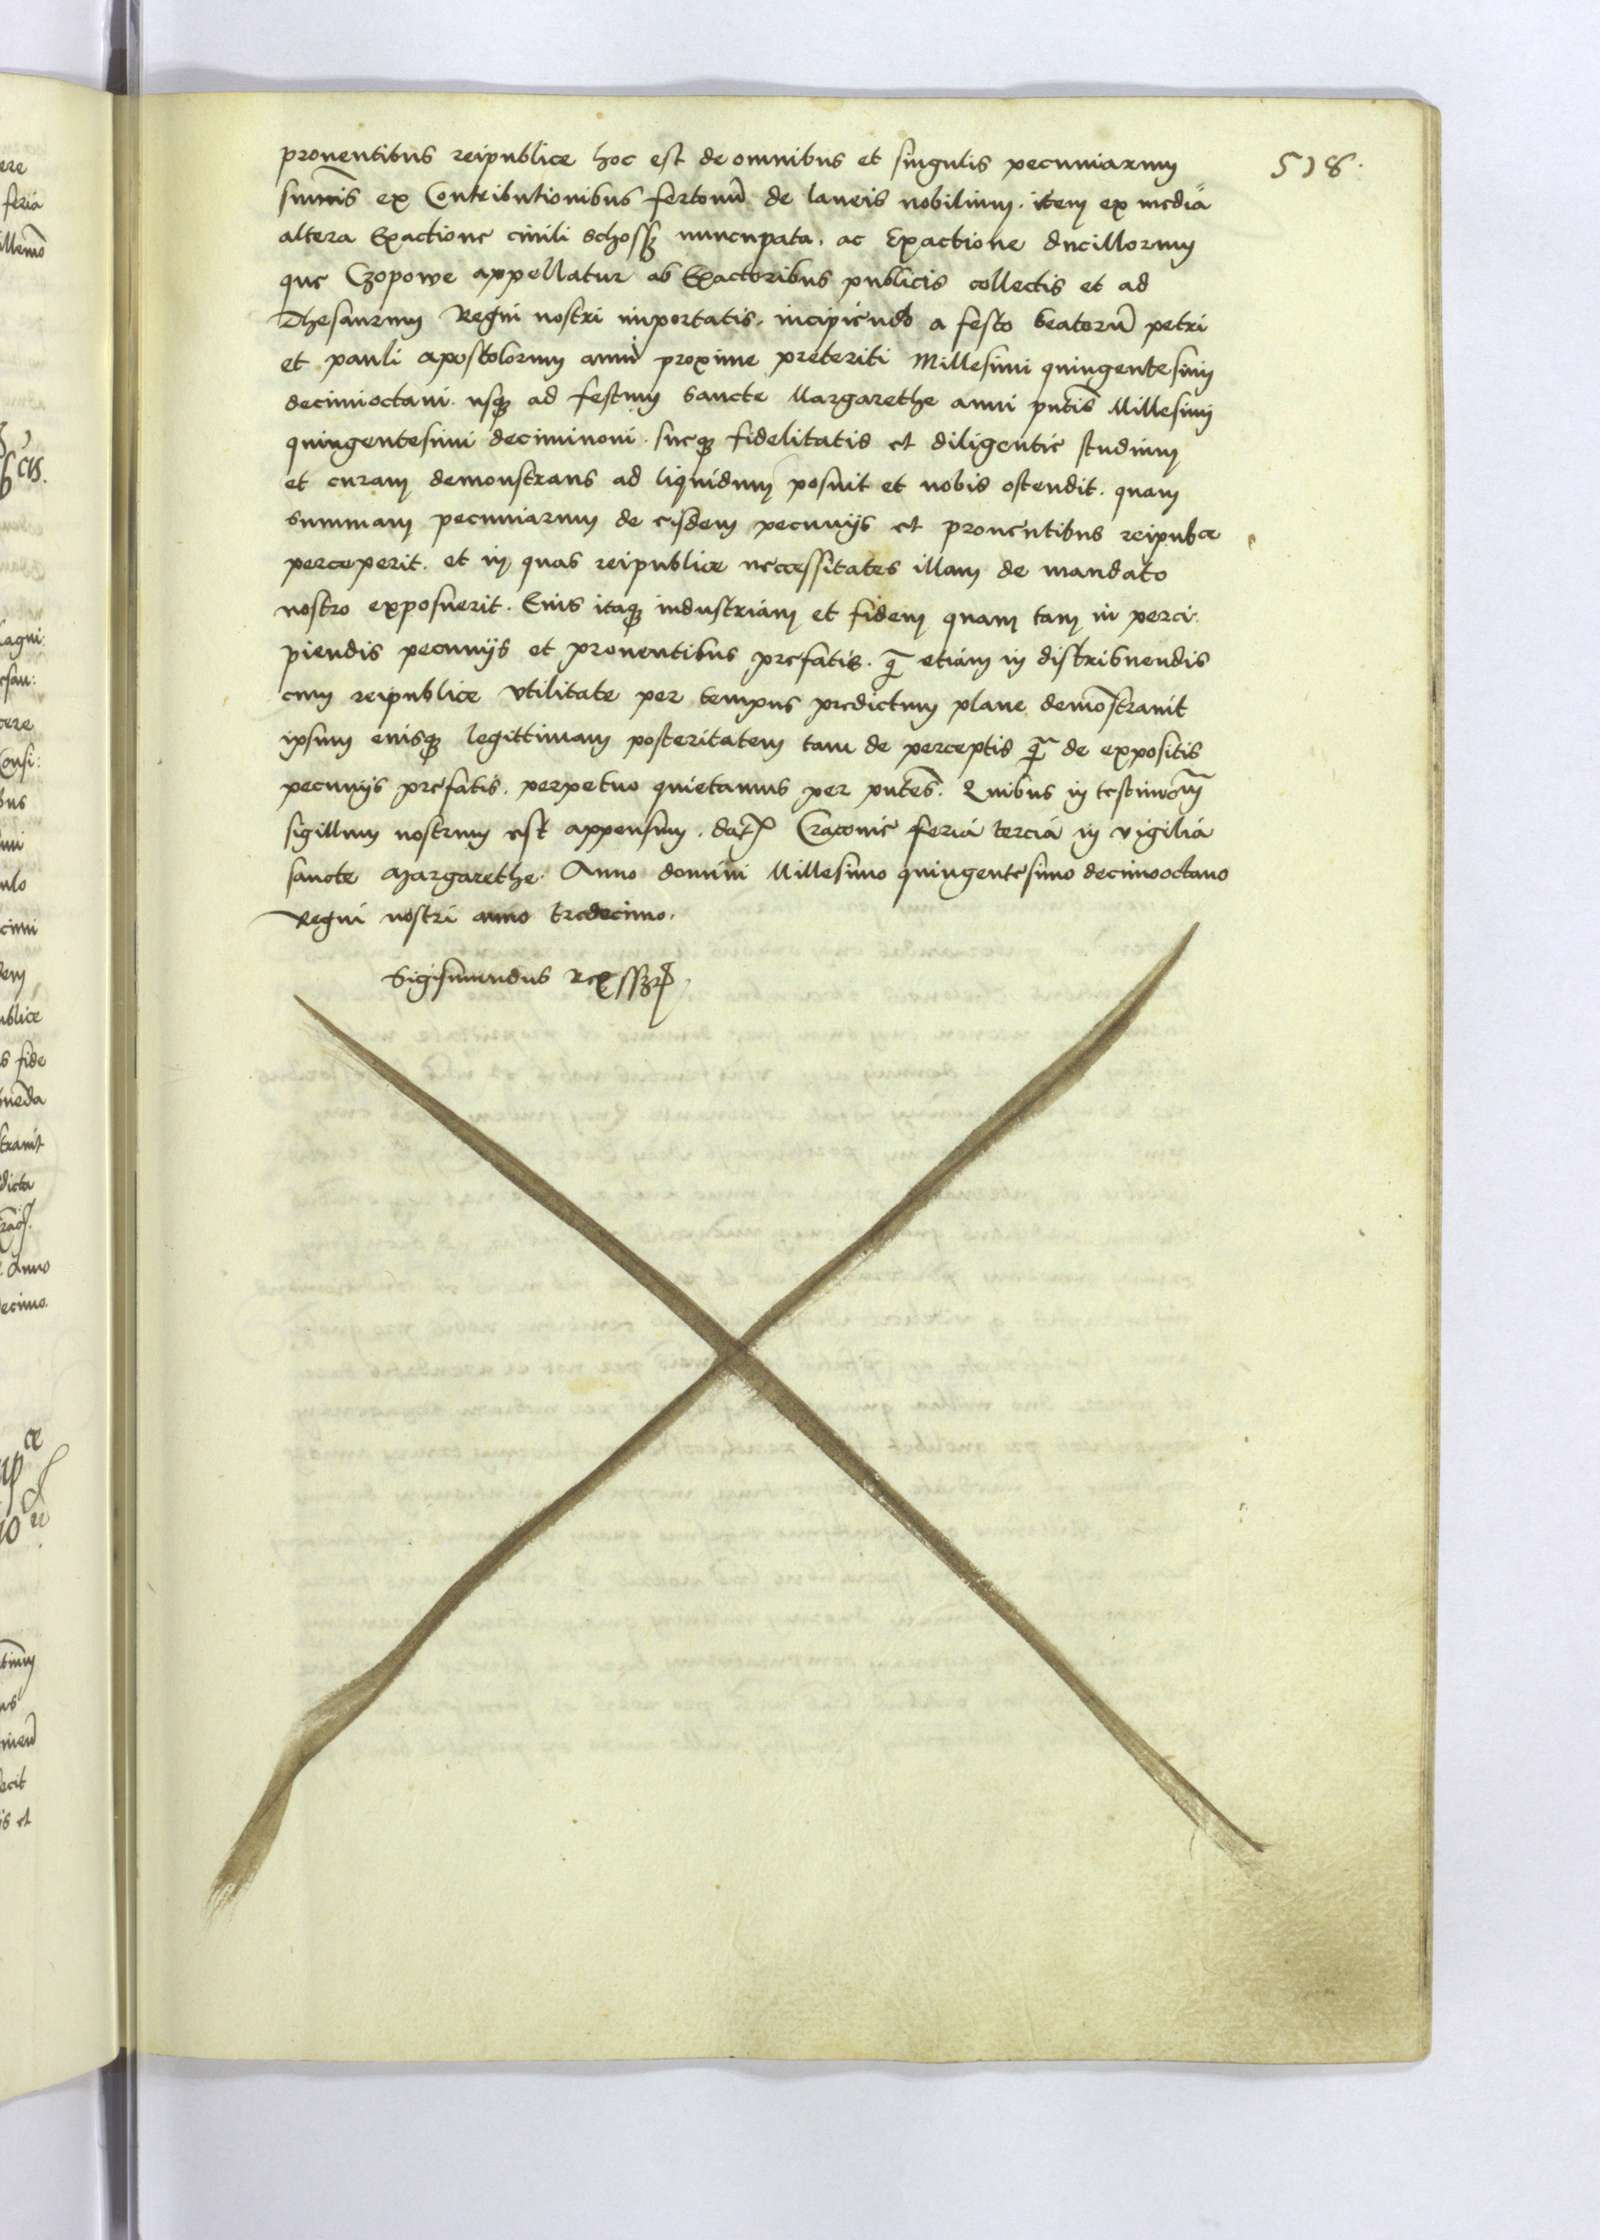 518.
prouentibus reipublice hoc est de omnibus et singulis pecuniarum
summis ex Contributionibus fertonū de laneis nobilium. item ex media
altera Exactione ciuili schosz nuncupata. ac Exactione ducillorum
que Czopowe appellatur ab Exactoribus publicis collectis et ad
Thesaurum Regni nostri importatis. incipiendo a festo beatorū petri
et pauli apostolorum anni proxime preteriti Millesimi quingentesimi
decimioctaui. usq3 ad festum Sancte Margarethe anni pntis Millesimi
quingentesimi deciminoni. sueq3 fidelitatis et diligentie studium
et curam demonstrans ad liquidum posuit et nobis ostendit. quam
summam pecuniarum de eisdem pecunijs et prouentibus reipubce
perceperit. et in quas reipublice necessitates illam de mandato
nostro exposuerit. Eius itaq3 industriam et fidem quam tam in perci
piendis pecunijs et prouentibus prefatis. q̄ etiam in distribuendis
cum reipublice vtilitate per tempus predictum plane demōstrauit
ipsum eiusq3 legittimam posteritatem tam de perceptis q̄ de expositis
pecunijs prefatis. perpetuo quietamus per pntes. Quibus in testimoīm
sigillum nostrum est appensum. dat Cracouie feria tercia in vigilia
sancte Margarethe. Anno domini Millesimo quingentesimo decimooctauo
Regni nostri anno tredecimo.
Sigismundus Rex sszt